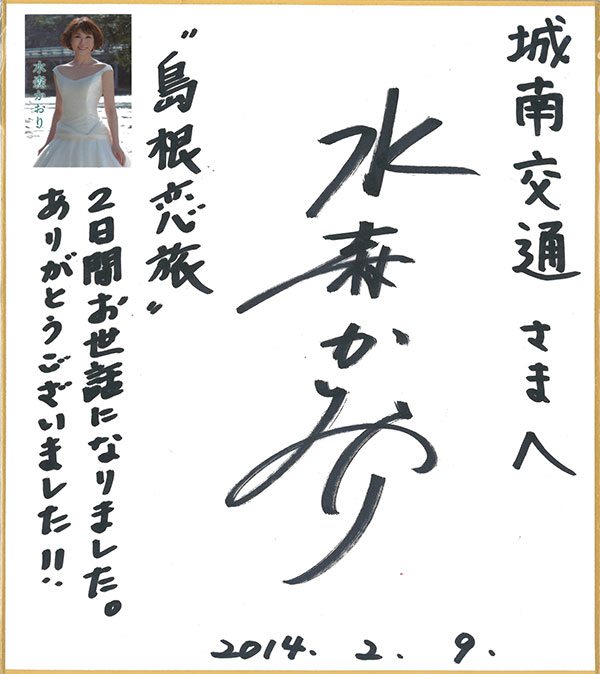 城南交通 さまへ
水森かおり
“島根恋旅”
2日間お世話になりました。
ありがとうございました!!
水森かおり
2014. 2. 9.